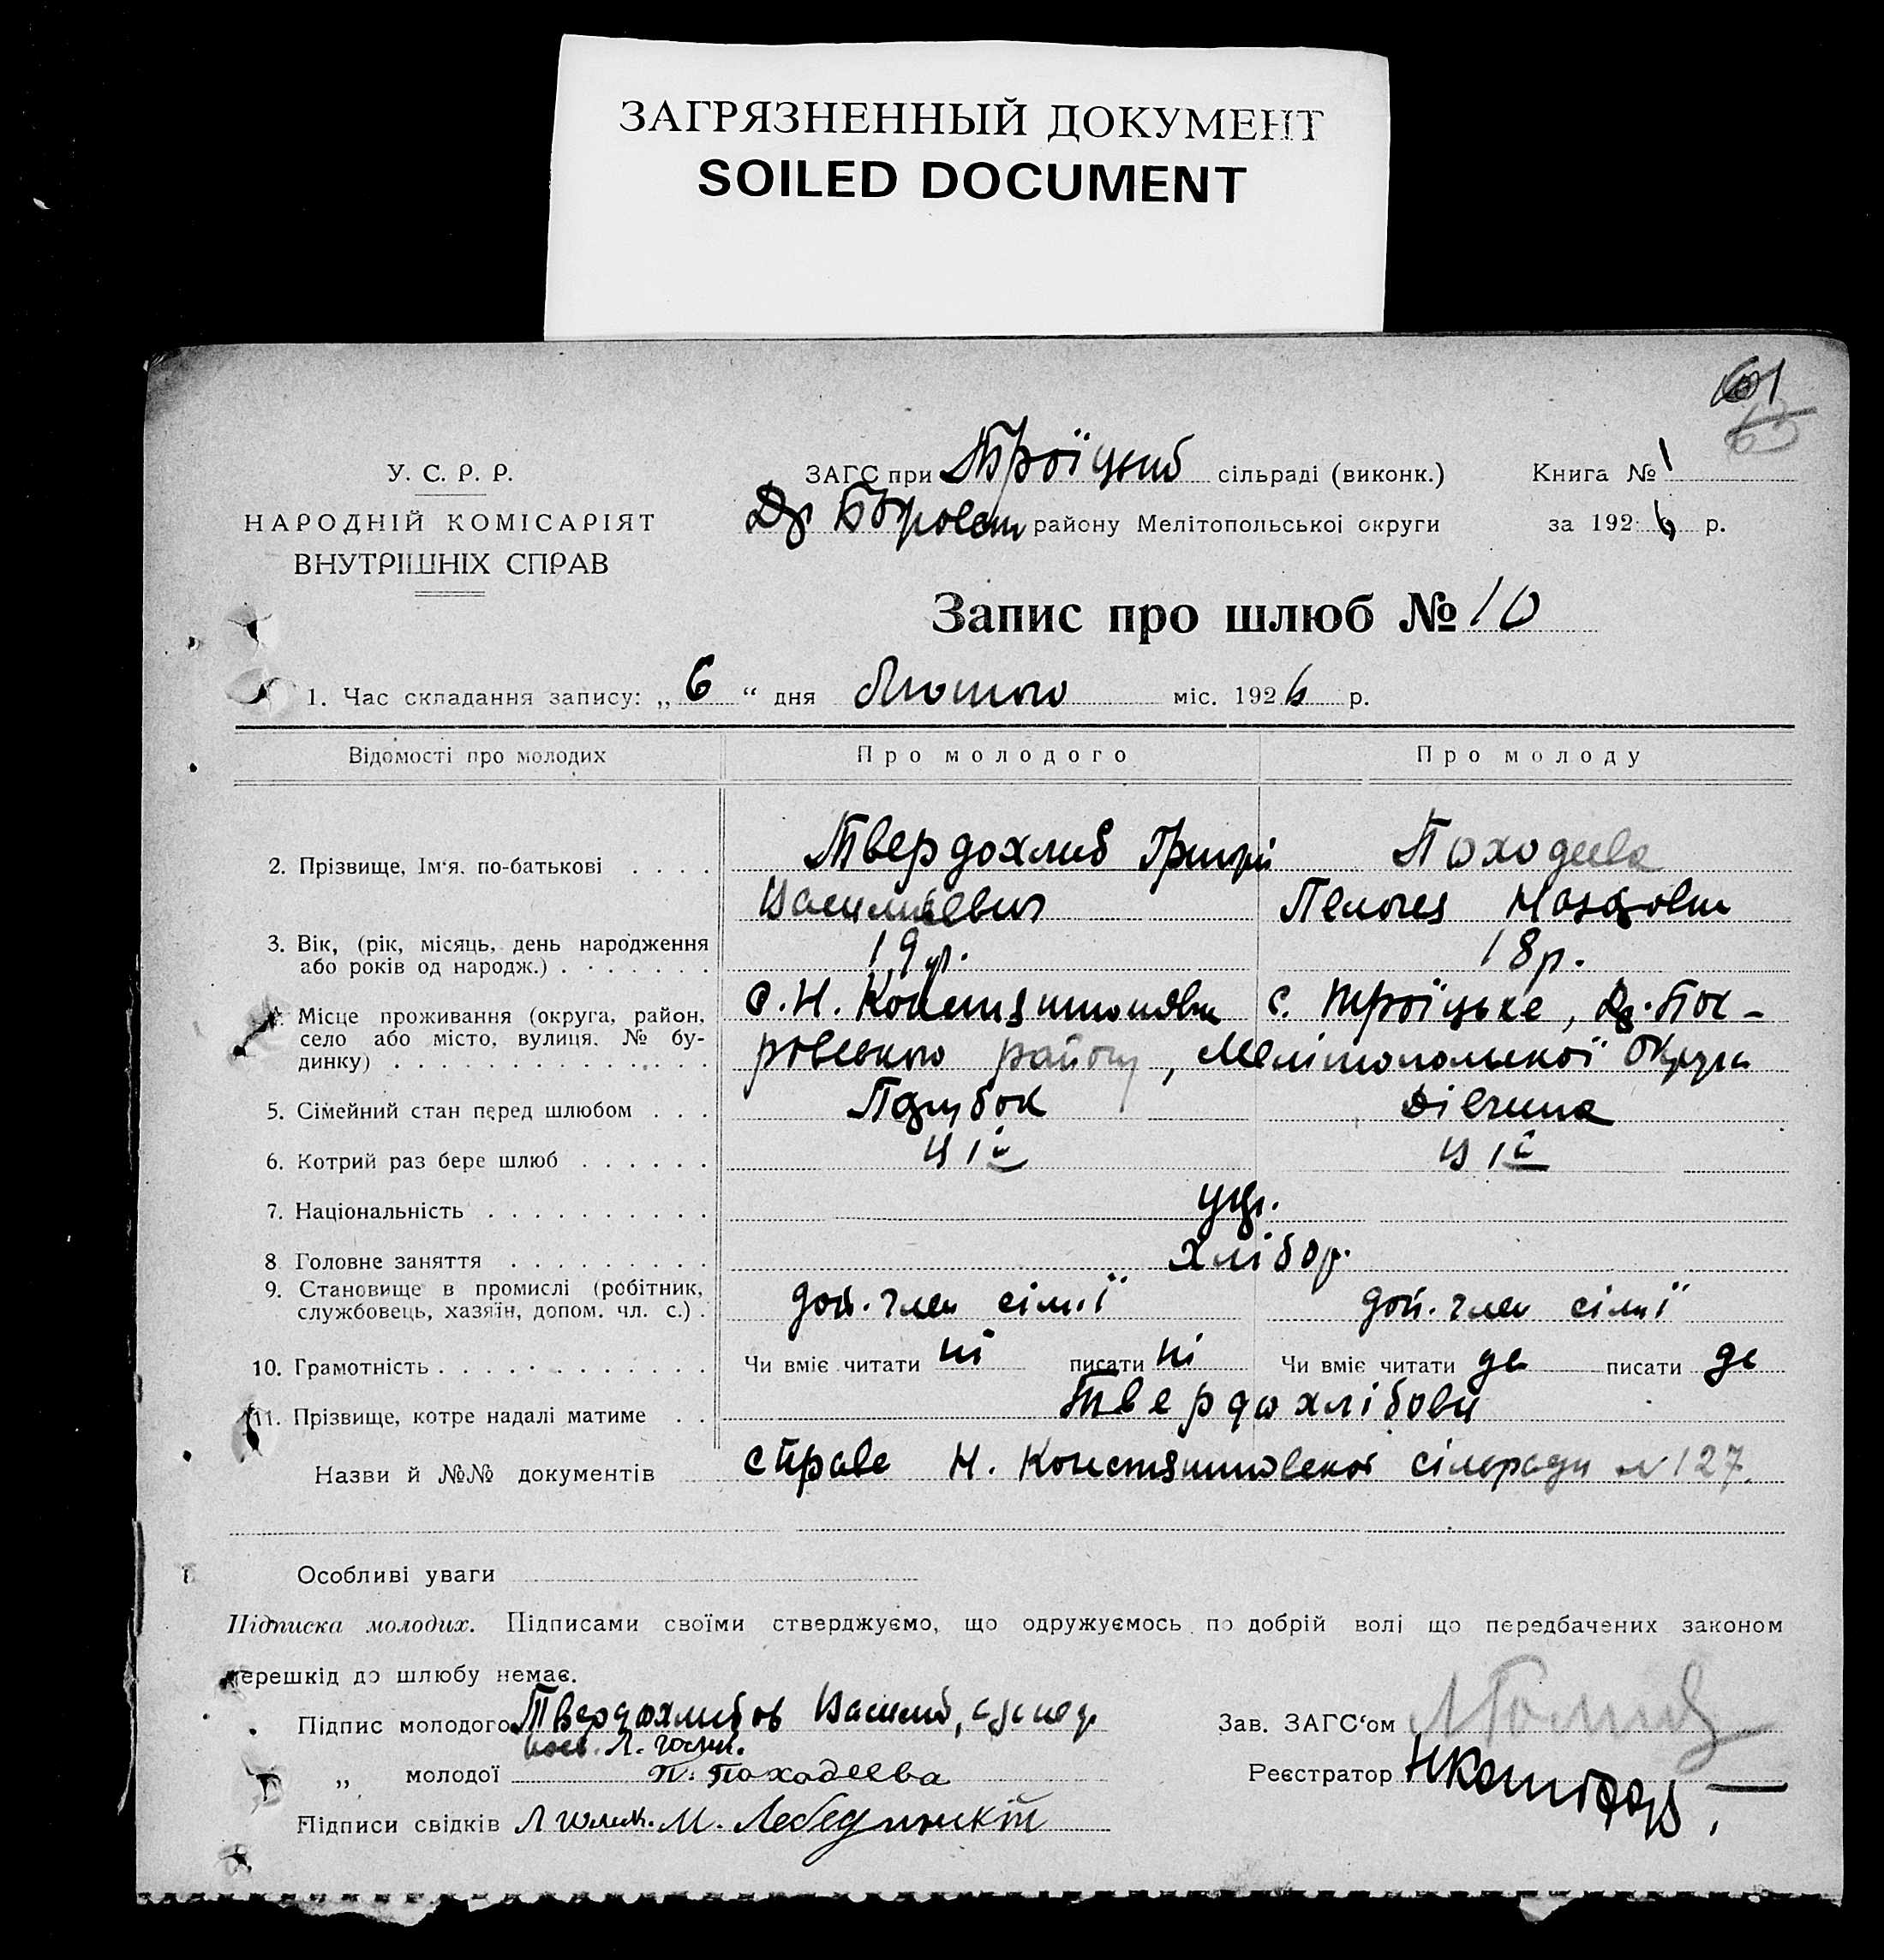 ЗАГРЯЗНЕННЫЙ ДОКУМЕНТ
SOILED DOCUMENT
61
63
У. С. Р. Р.
НАРОДНІЙ КОМІСАРІЯТ
ВНУТРІШНІХ СПРАВ
ЗАГС при Троїцькій сільраді (виконк.)
району Мелітопольської округи
Книга № 1
за 1926 р.
Запис про шлюб № 10
1. Час складання запису: „6“ дня Лютого міс. 1926 р.
Відомості про молодих Про молодого Про молоду
2. Прізвище, Ім'я, по-батькові . . . . Твердохлиб Григорі Походеева
Василиевич Пелагея
3. Вік, (рік, місяць, день народження
або років од народж.) . . . . . . . 19 р. 18 р.
4. Місце проживання (округа, район,
село або місто, вулиця, № бу-
динку) . . . . . . . . . . . . . .
с. Н. Константиновка с. Троїцьке, Др. Пок-
ровського району, Мелітопольскої Округи
5. Сімейний стан перед шлюбом . . . Парубок Дівчина
6. Котрий раз бере шлюб . . . . . . в 1й в 1й
7. Національність . . . . . . . . . . укр.
8 Головне заняття . . . . . . . . . хлібор.
9. Становище в промислі (робітник,
службовець, хазяїн, допом. чл. с.) .
доп. член сімії доп. член сімії
10. Грамотність . . . . . . . . . . . . Чи вміє читати ні писати ні Чи вміє читати да писати да
11. Прізвище, котре надалі матиме . . Твердохлібови
Назви й №№ документів справа Н. Константиновскої сільради № 127.
Особливі уваги
Підписка молодих. Підписами своїми стверджуємо, що одружуємось по добрій волі що передбачених законом
перешкід до шлюбу немає.
Підпис молодого Твердохлибов
„ молодої П. Походеева
Підписи свідків М. Лебединский
Зав. ЗАГС'ом
Реєстратор